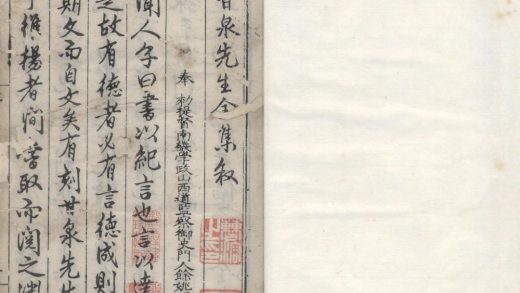 甘泉先生全集叙
奉 勑提督南畿學政山西道監察御史門人餘姚
聞人子曰書以紀言也言以達
之故有德者必有言德成則
期文而自文矣有刻甘泉先生
維揚者間嘗取而閱之淵